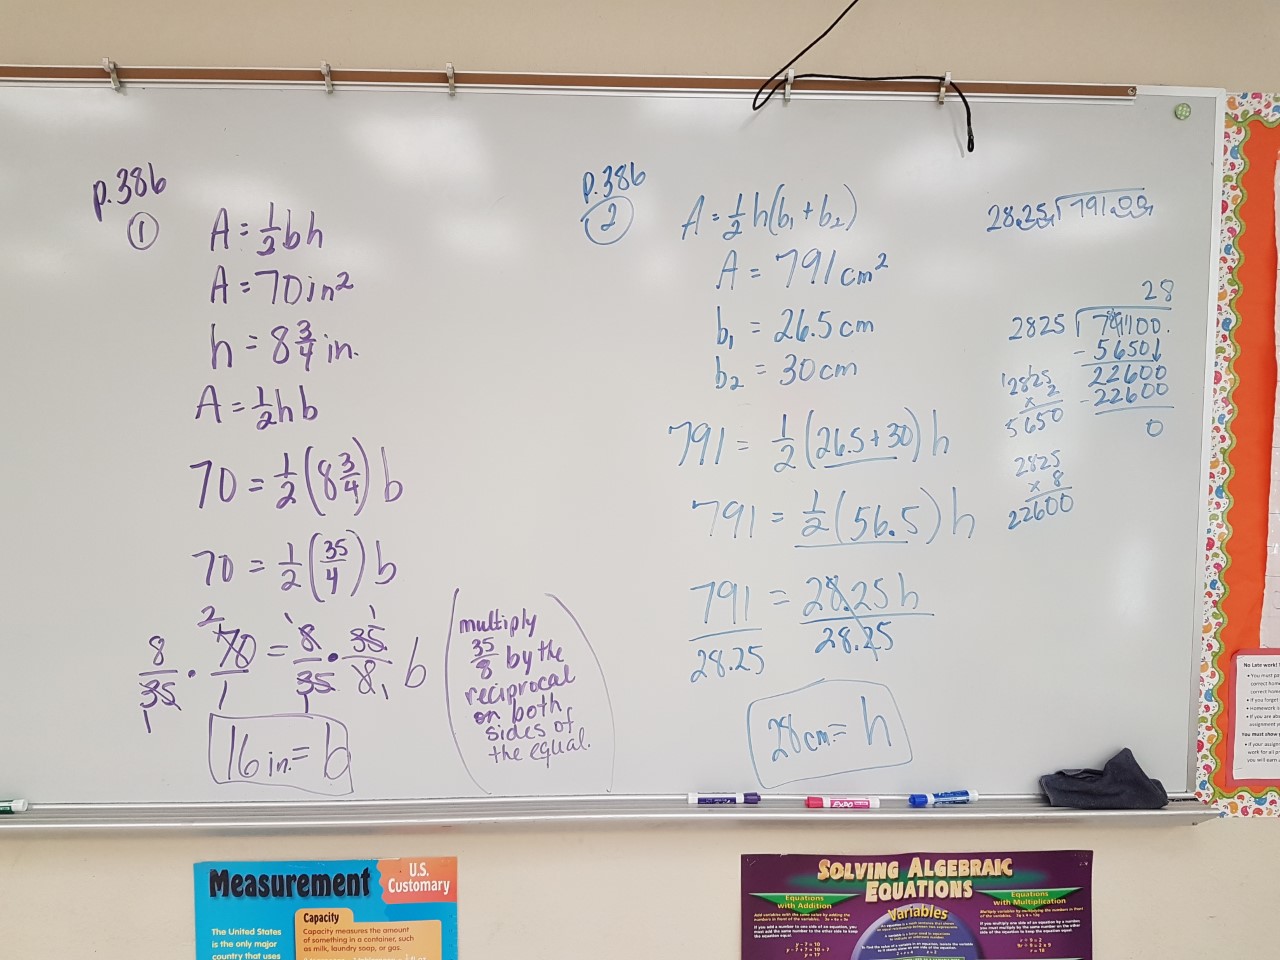 p.386
①
A = 1/2 bh
A = 70 in²
h = 8 3/4 in.
A = 1/2 hb
70 = 1/2 (8 3/4) b
70 = 1/2 (35/4) b
2 1 1
8/35 · 70/1 = 8/35 · 35/8 b
1 1 1
16 in. = b
multiply
35/8 by the
reciprocal
on both
sides of
the equal.
p.386
②
A = 1/2 h(b₁ + b₂)
A = 791 cm²
b₁ = 26.5 cm
b₂ = 30 cm
791 = 1/2 (26.5 + 30) h
791 = 1/2 (56.5) h
791/28.25 = 28.25 h/28.25
28 cm = h
28.25 ⟌791.00
28
2825 ⟌79100.
- 5650
22600
- 22600
0
2825
x 2
5650
2825
x 8
22600
EXPO
Measurement
U.S.
Customary
Capacity
Capacity measures the amount
of something in a container, such
as milk, laundry soap, or gas.
The United States
is the only major
country that uses
SOLVING ALGEBRAIC
EQUATIONS
Equations
with Addition
Variables
Equations
with Multiplication
y - 7 = 10
y - 7 + 7 = 10 + 7
y = 17
No Late work!